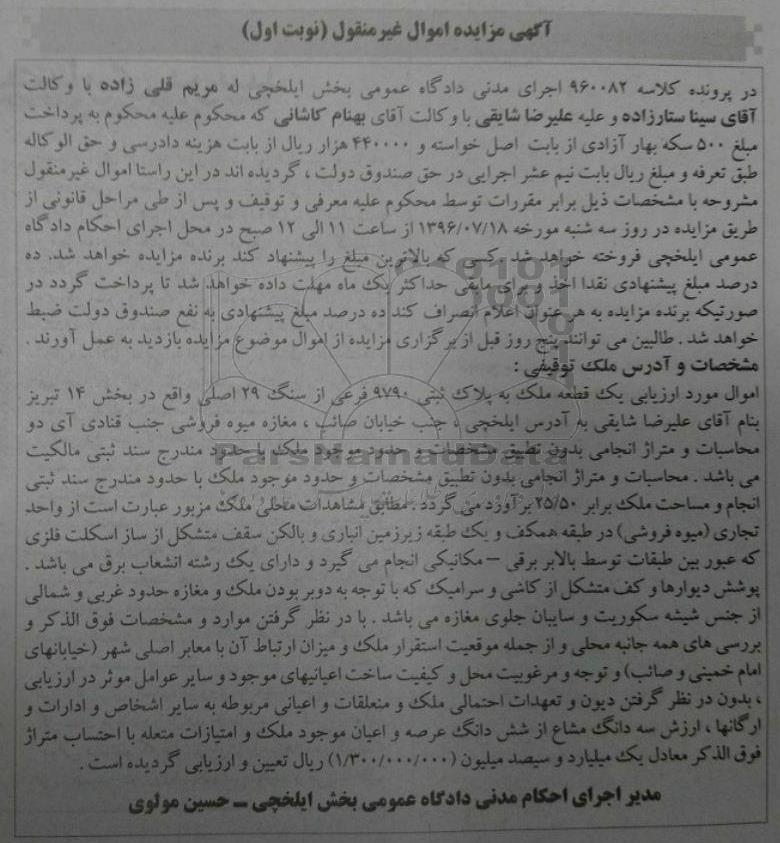 آگهی مزایده اموال غیرمنقول (نوبت اول)
در پرونده کلاسه ۹۶۰۰۸۲ اجرای مدنی دادگاه عمومی بخش ایلخچی له مریم قلی زاده با وکالت
آقای سینا ستارزاده و علیه علیرضا شایقی با وکالت آقای بهنام کاشانی که محکوم علیه محکوم به پرداخت
مبلغ ۵۰۰ سکه بهار آزادی از بابت اصل خواسته و ۴۴۰۰۰۰ هزار ریال از بابت هزینه دادرسی و حق الوکاله
طبق تعرفه و مبلغ ریال بابت نیم عشر اجرایی در حق صندوق دولت ، گردیده اند در این راستا اموال غیرمنقول
مشروحه با مشخصات ذیل برابر مقررات توسط محکوم علیه معرفی و توقیف و پس از طی مراحل قانونی از
طریق مزایده در روز سه شنبه مورخه ۱۳۹۶/۰۷/۱۸ از ساعت ۱۱ الی ۱۲ صبح در محل اجرای احکام دادگاه
عمومی ایلخچی فروخته خواهد شد .کسی که بالاترین مبلغ را پیشنهاد کند برنده مزایده خواهد شد. ده
درصد مبلغ پیشنهادی نقدا اخذ و برای مابقی حداکثر یک ماه مهلت داده خواهد شد تا پرداخت گردد در
صورتیکه برنده مزایده به هر عنوان اعلام انصراف کند ده درصد مبلغ پیشنهادی به نفع صندوق دولت ضبط
خواهد شد . طالبین می توانند پنج روز قبل از برگزاری مزایده از اموال موضوع مزایده بازدید به عمل آورند .
مشخصات و آدرس ملک توقیفی :
اموال مورد ارزیابی یک قطعه ملک به پلاک ثبتی ۹۷۹۰ فرعی از سنگ ۲۹ اصلی واقع در بخش ۱۴ تبریز
بنام آقای علیرضا شایقی به آدرس ایلخچی ، جنب خیابان صائب ، مغازه میوه فروشی جنب قنادی آی دو
محاسبات و متراژ انجامی بدون تطبیق مشخصات و حدود موجود ملک با حدود مندرج سند ثبتی مالکیت
می باشد . محاسبات و متراژ انجامی بدون تطبیق مشخصات و حدود موجود ملک با حدود مندرج سند ثبتی
انجام و مساحت ملک برابر ۲۵/۵۰ برآورد می گردد . مطابق مشاهدات محلی ملک مزبور عبارت است از واحد
تجاری (میوه فروشی) در طبقه همکف و یک طبقه زیرزمین انباری و بالکن سقف متشکل از ساز اسکلت فلزی
که عبور بین طبقات توسط بالابر برقی – مکانیکی انجام می گیرد و دارای یک رشته انشعاب برق می باشد .
پوشش دیوارها و کف متشکل از کاشی و سرامیک که با توجه به دوبر بودن ملک و مغازه حدود غربی و شمالی
از جنس شیشه سکوریت و سایبان جلوی مغازه می باشد . با در نظر گرفتن موارد و مشخصات فوق الذکر و
بررسی های همه جانبه محلی و از جمله موقعیت استقرار ملک و میزان ارتباط آن با معابر اصلی شهر (خیابانهای
امام خمینی و صائب) و توجه و مرغوبیت محل و کیفیت ساخت اعیانیهای موجود و سایر عوامل موثر در ارزیابی
، بدون در نظر گرفتن دیون و تعهدات احتمالی ملک و متعلقات و اعیانی مربوطه به سایر اشخاص و ادارات و
ارگانها ، ارزش سه دانگ مشاع از شش دانگ عرصه و اعیان موجود ملک و امتیازات متعله با احتساب متراژ
فوق الذکر معادل یک میلیارد و سیصد میلیون (۱/۳۰۰/۰۰۰/۰۰۰) ریال تعیین و ارزیابی گردیده است .
مدیر اجرای احکام مدنی دادگاه عمومی بخش ایلخچی – حسین مولوی
ParsNamadData